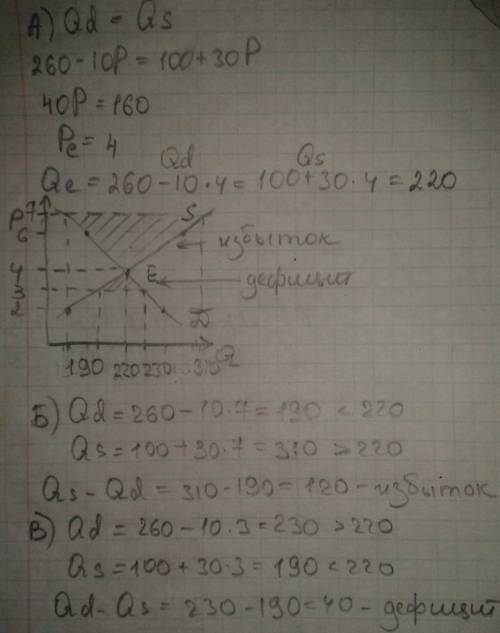 А) Qd = Qs
260 - 10P = 100 + 30P
40P = 160
Pe = 4
Qd Qs
Qe = 260 - 10·4 = 100 + 30·4 = 220
P 7
6
S
избыток
4
E
дефицит
3
2
D
190 220 230 310 Q
Б) Qd = 260 - 10·7 = 190 < 220
Qs = 100 + 30·7 = 310 > 220
Qs - Qd = 310 - 190 = 120 - избыток
В) Qd = 260 - 10·3 = 230 > 220
Qs = 100 + 30·3 = 190 < 220
Qd - Qs = 230 - 190 = 40 - дефицит